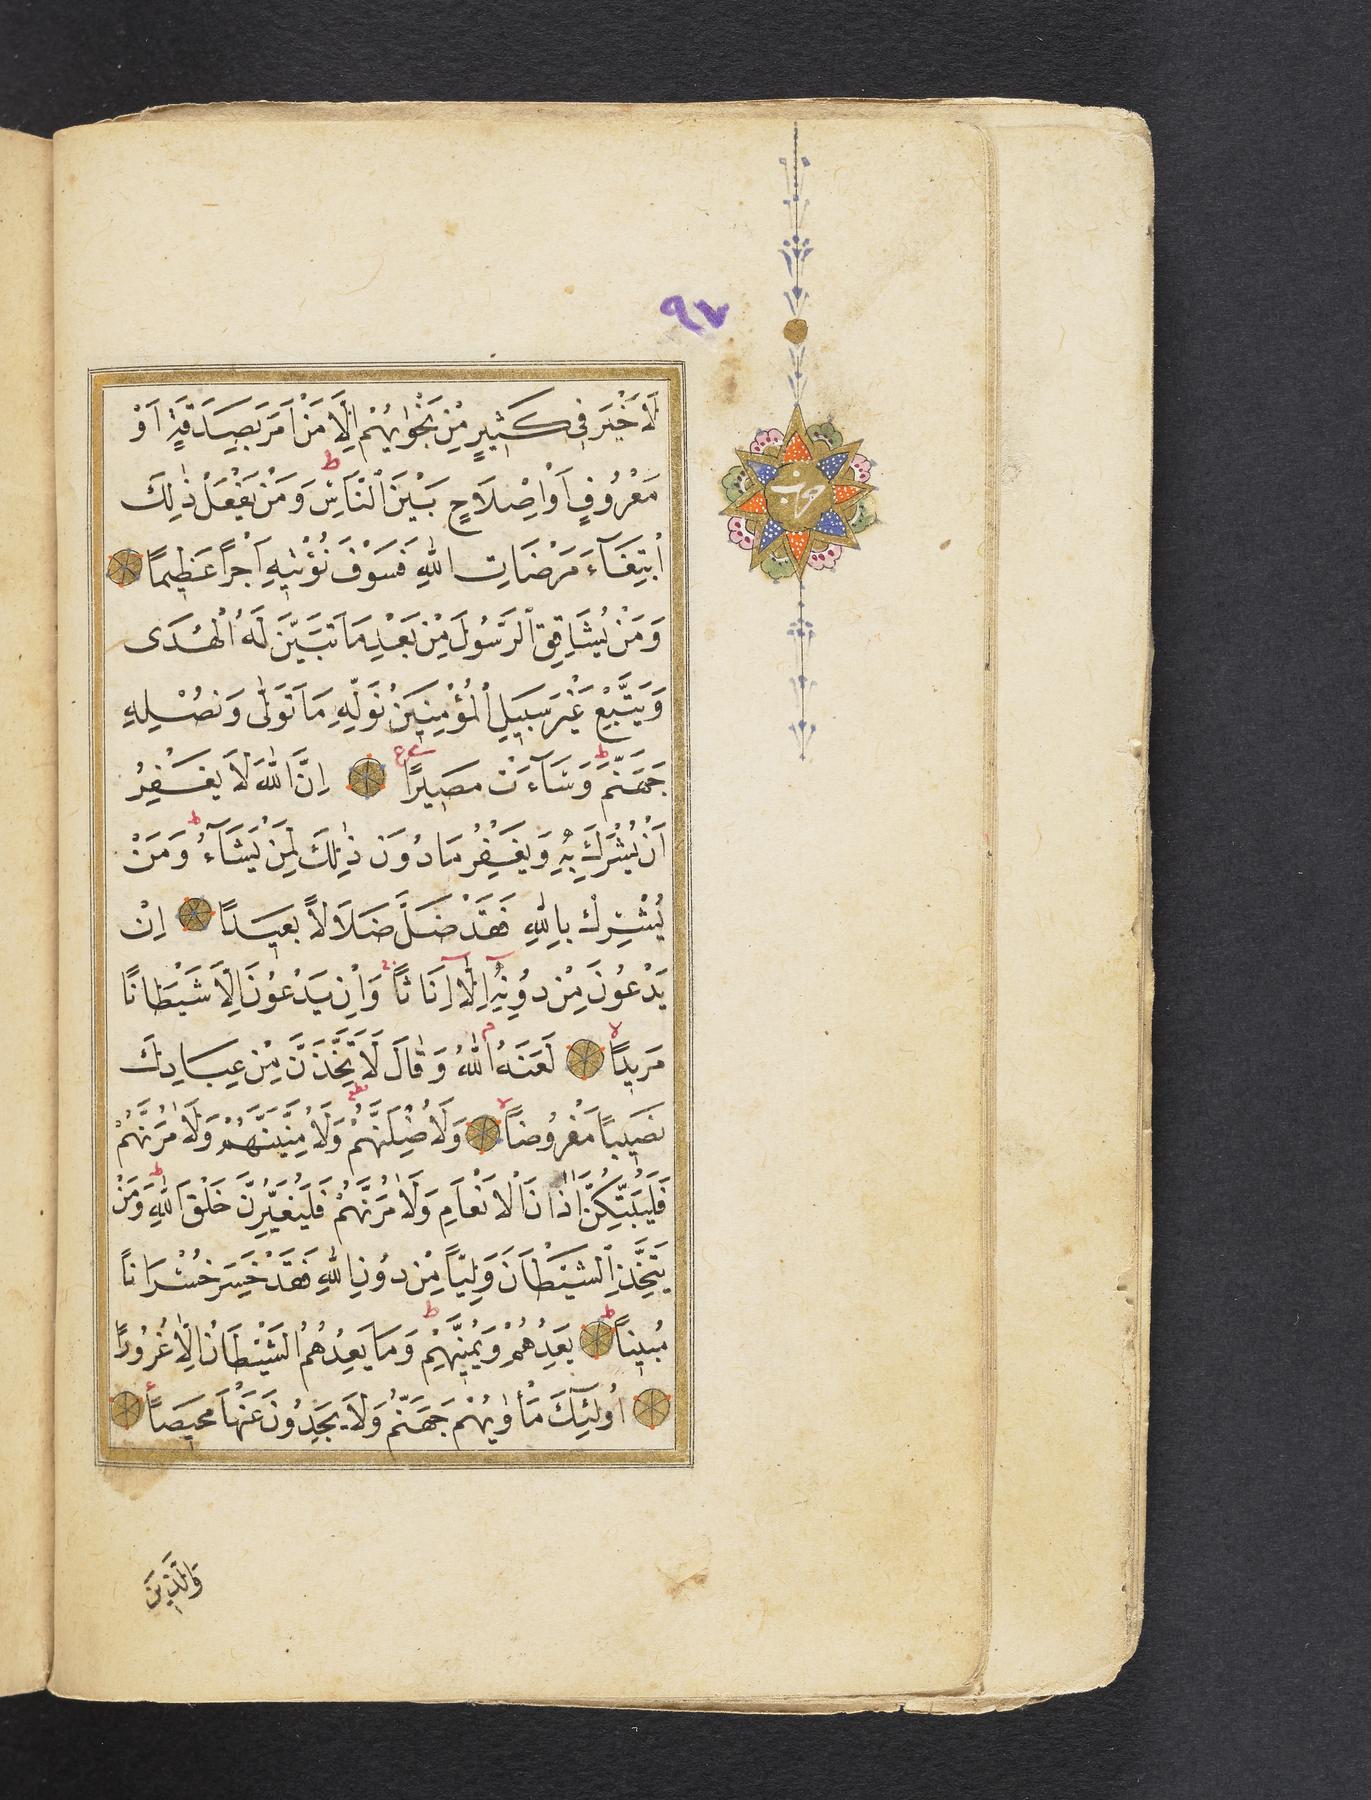 ٩٧
حزب
لَا خَيْرَ فِى كَثِيرٍ مِنْ نَجْوٰيهُمْ اِلَّا مَنْ اَمَرَ بِصَدَقَةٍ اَوْ
مَعْرُوفٍ اَوْ اِصْلَاحٍ بَيْنَ النَّاسِ ط وَمَنْ يَفْعَلْ ذٰلِكَ
ابْتِغَآءَ مَرْضَاتِ اللّٰهِ فَسَوْفَ نُؤْتِيهِ اَجْرًا عَظِيمًا
وَمَنْ يُشَاقِقِ الرَّسُولَ مِنْ بَعْدِ مَا تَبَيَّنَ لَهُ الْهُدٰى
وَيَتَّبِعْ غَيْرَ سَبِيلِ الْمُؤْمِنِينَ نُوَلِّهِ مَا تَوَلّٰى وَنُصْلِهِ
جَهَنَّمَ ط وَسَآءَتْ مَصِيرًا ع اِنَّ اللّٰهَ لَا يَغْفِرُ
اَنْ يُشْرَكَ بِهِ وَيَغْفِرُ مَا دُونَ ذٰلِكَ لِمَنْ يَشَآءُ ط وَمَنْ
يُشْرِكْ بِاللّٰهِ فَقَدْ ضَلَّ ضَلَالًا بَعِيدًا اِنْ
يَدْعُونَ مِنْ دُونِهٓ اِلَّٓا اِنَاثًا وَاِنْ يَدْعُونَ اِلَّا شَيْطَانًا
مَرِيدًا لا لَعَنَهُ اللّٰهُ م وَقَالَ لَاَتَّخِذَنَّ مِنْ عِبَادِكَ
نَصِيبًا مَفْرُوضًا لا وَلَاُضِلَّنَّهُمْ وَلَاُمَنِّيَنَّهُمْ وَلَاٰمُرَنَّهُمْ
فَلَيُبَتِّكُنَّ اٰذَانَ الْاَنْعَامِ وَلَاٰمُرَنَّهُمْ فَلَيُغَيِّرُنَّ خَلْقَ اللّٰهِ ط وَمَنْ
يَتَّخِذِ الشَّيْطَانَ وَلِيًّا مِنْ دُونِ اللّٰهِ فَقَدْ خَسِرَ خُسْرَانًا
مُبِينًا ط يَعِدُهُمْ وَيُمَنِّيهِمْ ط وَمَا يَعِدُهُمُ الشَّيْطَانُ اِلَّا غُرُورًا
اُولٰٓئِكَ مَأْوٰيهُمْ جَهَنَّمُ وَلَا يَجِدُونَ عَنْهَا مَحِيصًا
وَالَّذِينَ